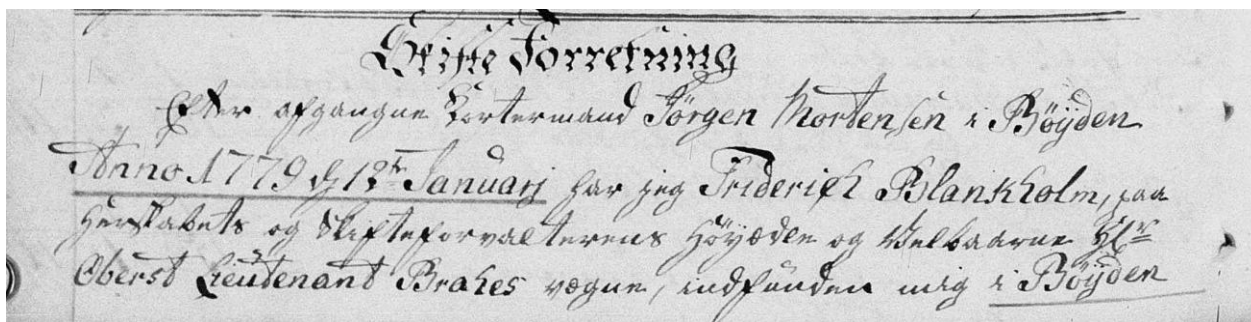 Skifte Forretning
Efter afgangne Portermand Jörgen Mortensen i Böÿden
Anno 1779 d 12te Januarj har jeg Friderich Blankholm, paa
Herskabets og Skifteforvalterens Höÿædle og Velbaarne Hr
Oberst Lieutenant Brahes vegne, indfunden mig i Böÿden